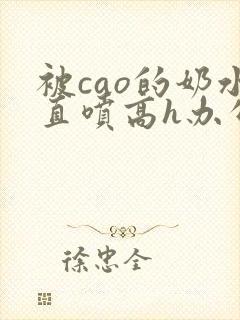 被cao的奶水
直喷高h办
徐忠全